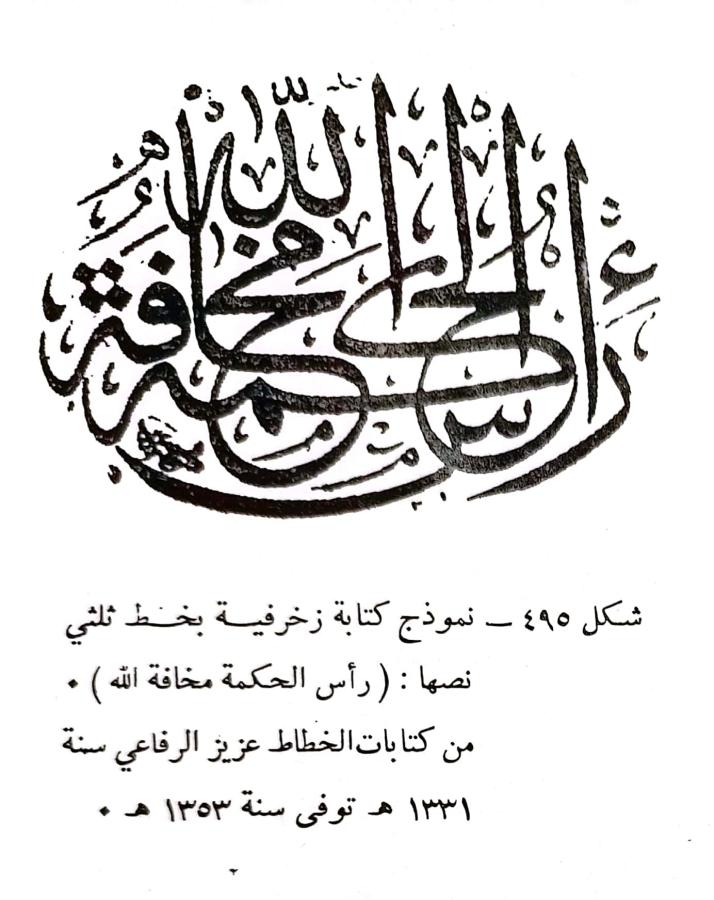 رأس الحكمة مخافة الله
شكل ٤٩٥ ــ نموذج كتابة زخرفيـــة بخـــط ثلثي
نصها : ( رأس الحكمة مخافة الله ) ٠
من كتابات الخطاط عزيز الرفاعي سنة
١٣٣١ هـ توفى سنة ١٣٥٣ هـ ٠